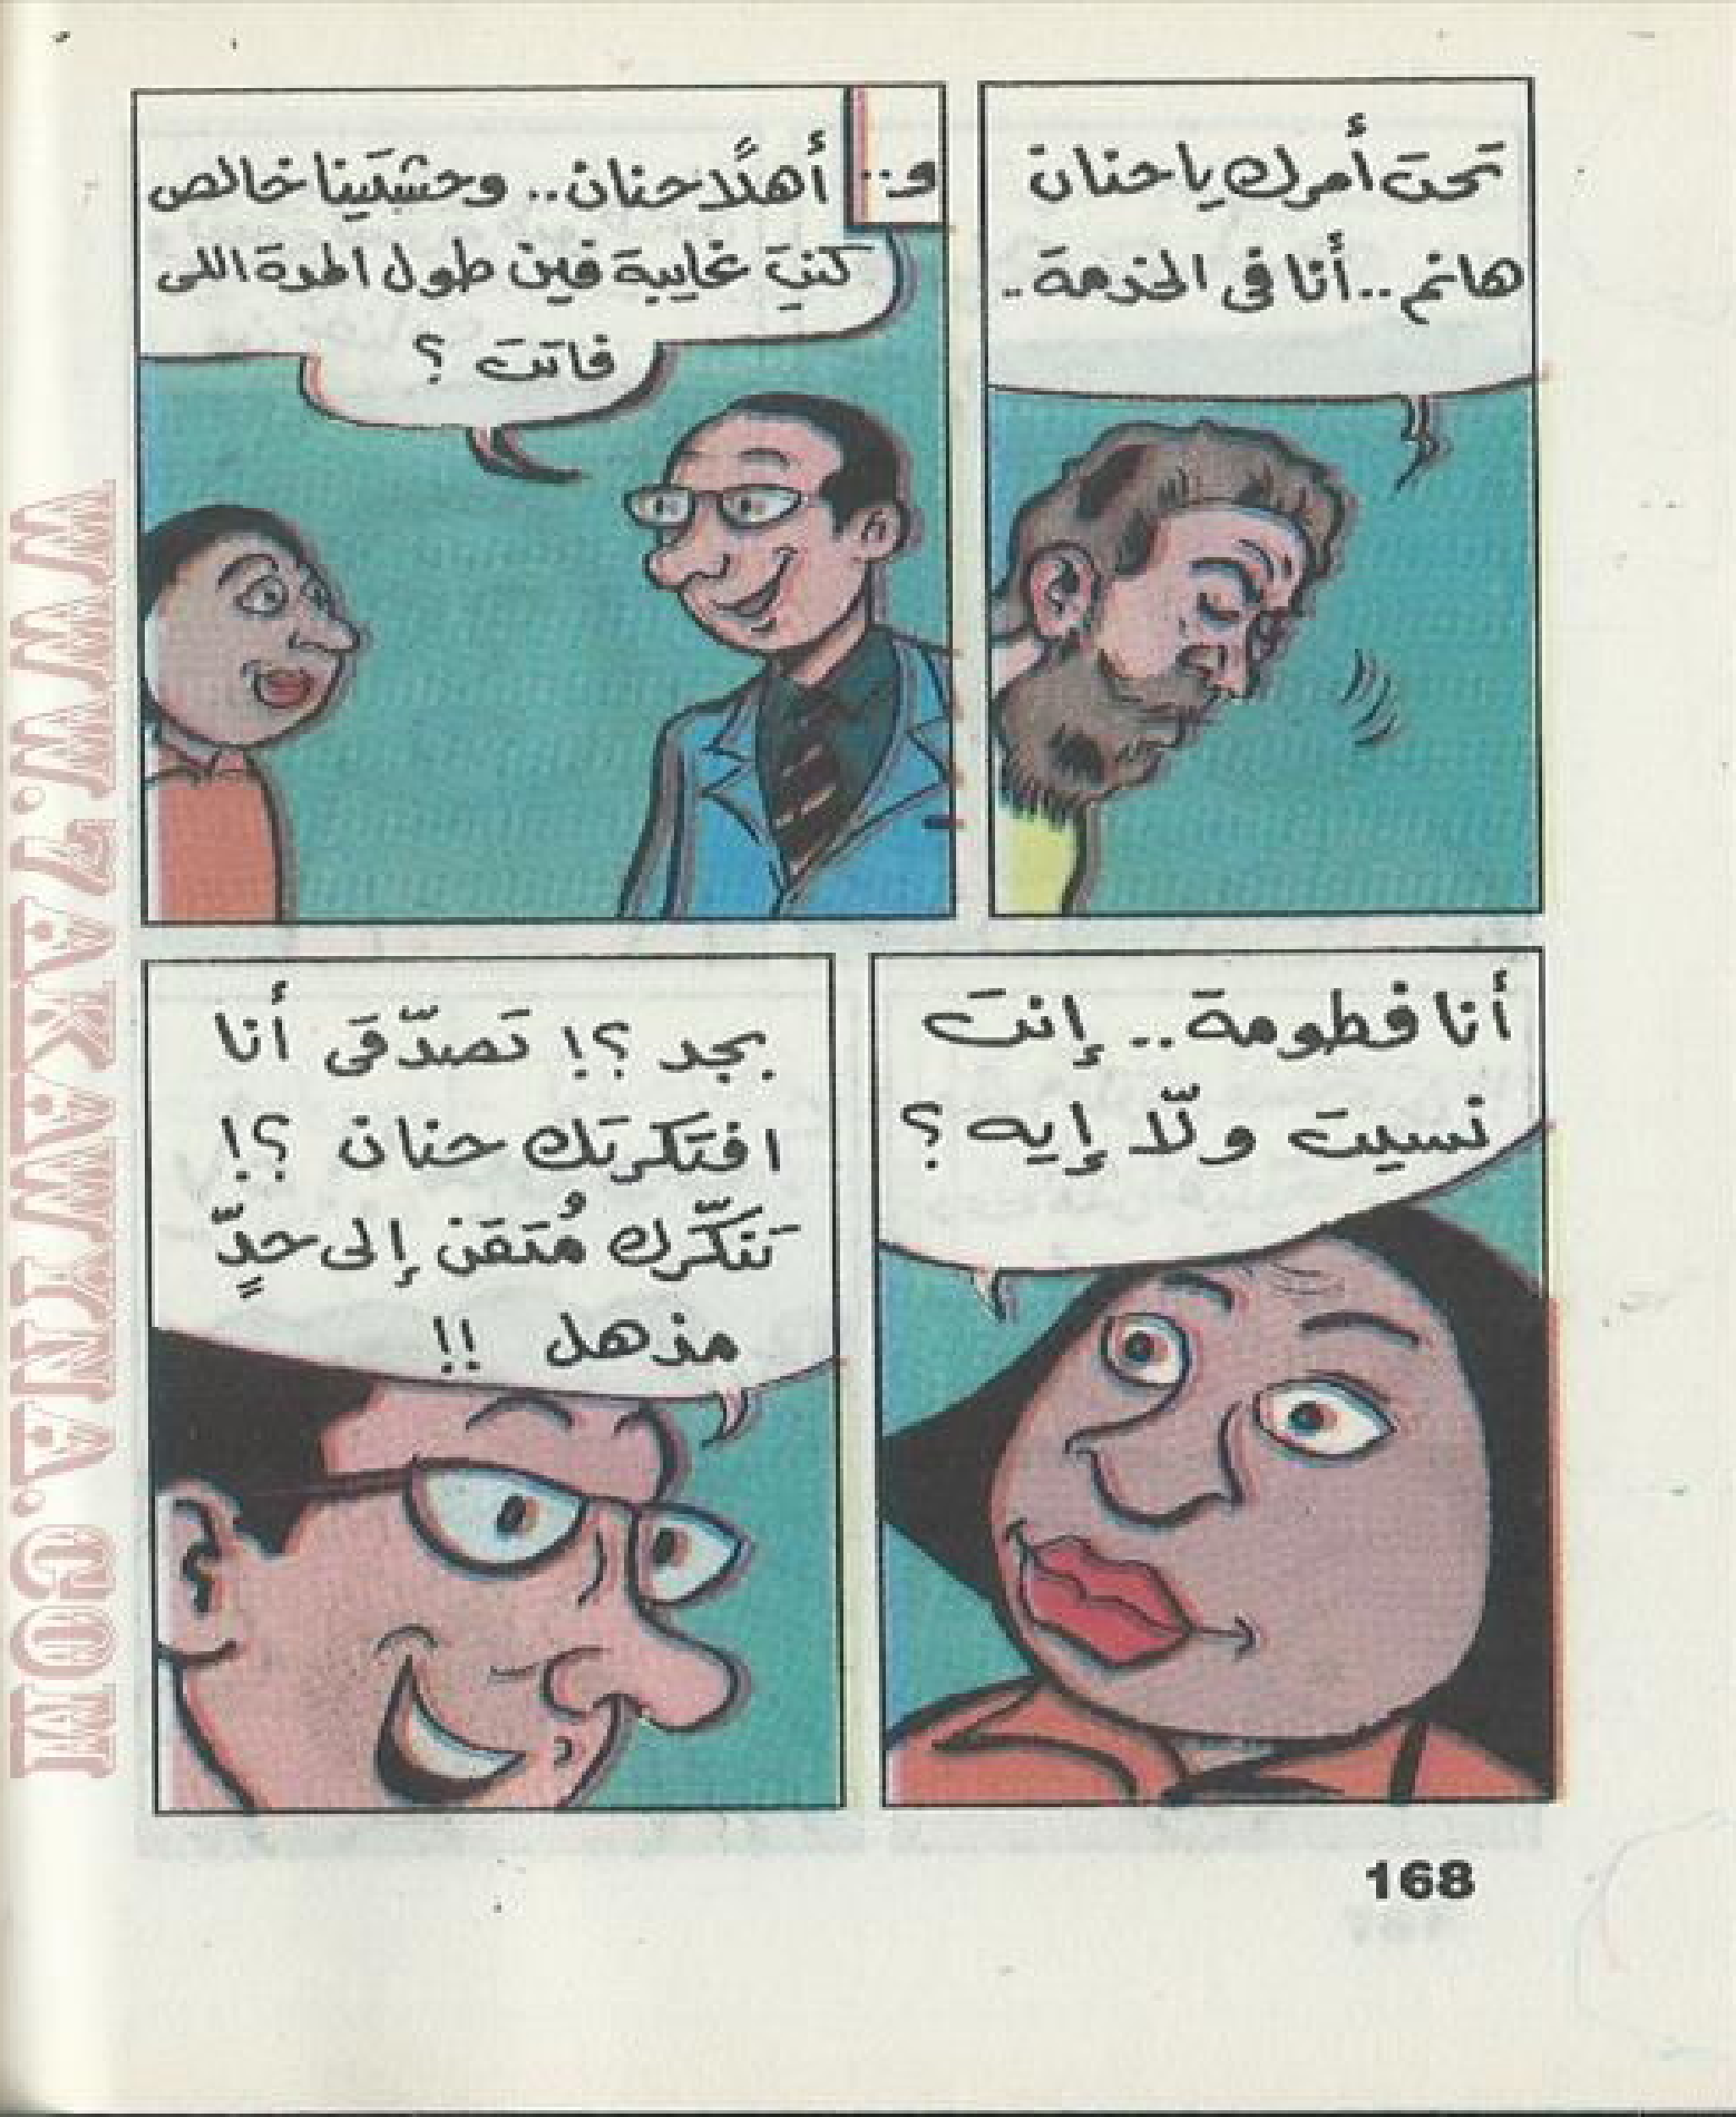 تحت أمرك يا حنان
هانم.. أنا فى الخدمة..
و..
أهلًا حنان.. وحشتينا خالص
كنتِ غايبة فين طول المدة اللى
فاتت ؟
أنا فطومة.. إنت
نسيت ولّا إيه ؟
بجد ؟! تصدّقى أنا
افتكرتك حنان ؟!
تنكّرك مُتقن إلى حدٍّ
مذهل !!
168
WWW.7AKAWITNA.COM